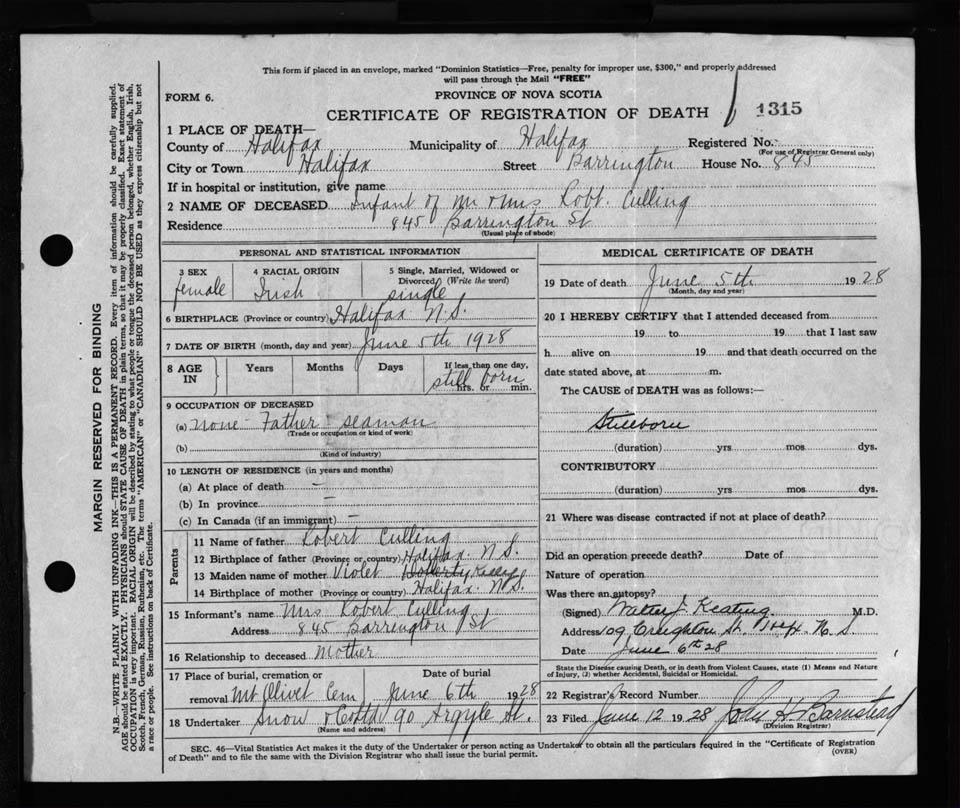 This form if placed in an envelope, marked "Dominion Statistics—Free, penalty for improper use, $300," and properly addressed
will pass through the Mail "FREE"
FORM 6.
PROVINCE OF NOVA SCOTIA
CERTIFICATE OF REGISTRATION OF DEATH
1315
1 PLACE OF DEATH—
County of Halifax Municipality of Halifax Registered No.
(For use of Registrar General only)
City or Town Halifax Street Barrington House No. 845
If in hospital or institution, give name
2 NAME OF DECEASED Infant of Mr & Mrs Robt. Culling
Residence 845 Barrington St
(Usual place of abode)
PERSONAL AND STATISTICAL INFORMATION
3 SEX 4 RACIAL ORIGIN 5 Single, Married, Widowed or
Divorced (Write the word)
female Irish single
6 BIRTHPLACE (Province or country) Halifax N.S.
7 DATE OF BIRTH (month, day and year) June 5th 1928
8 AGE IN Years Months Days If less than one day,
still born hrs. or min.
9 OCCUPATION OF DECEASED
(a) None - Father - seaman
(Trade or occupation or kind of work)
(b)
(Kind of industry)
10 LENGTH OF RESIDENCE (in years and months)
(a) At place of death —
(b) In province —
(c) In Canada (if an immigrant) —
Parents
11 Name of father Robert Culling
12 Birthplace of father (Province or country) Halifax N.S.
13 Maiden name of mother Violet
14 Birthplace of mother (Province or country) Halifax N.S.
15 Informant's name Mrs Robert Culling
Address 845 Barrington St
16 Relationship to deceased Mother
17 Place of burial, cremation or Date of burial
removal Mt Olivet Cem June 6th 1928
18 Undertaker Snow & Co Ltd 90 Argyle St.
(Name and address)
MEDICAL CERTIFICATE OF DEATH
19 Date of death June 5th 1928
(Month, day and year)
20 I HEREBY CERTIFY that I attended deceased from
19 to 19 that I last saw
h alive on 19 and that death occurred on the
date stated above, at m.
The CAUSE of DEATH was as follows:—
Stillborn
(duration) yrs mos dys.
CONTRIBUTORY
(duration) yrs mos dys.
21 Where was disease contracted if not at place of death?
Did an operation precede death? Date of
Nature of operation
Was there an autopsy?
(Signed) Walter J. Keating M.D.
Address 109 Creighton St. Hfx. N.S.
Date June 6th 28
State the Disease causing Death, or in death from Violent Causes, state (1) Means and Nature
of Injury, (2) whether Accidental, Suicidal or Homicidal.
22 Registrar's Record Number
23 Filed June 12 1928 John H. Barnstead
(Division Registrar)
SEC. 46—Vital Statistics Act makes it the duty of the Undertaker or person acting as Undertaker to obtain all the particulars required in the "Certificate of Registration
of Death" and to file the same with the Division Registrar who shall issue the burial permit.
(OVER)
MARGIN RESERVED FOR BINDING
N.B.—WRITE PLAINLY WITH UNFADING INK—THIS IS A PERMANENT RECORD. Every item of information should be carefully supplied.
AGE should be stated EXACTLY. PHYSICIANS should STATE CAUSE OF DEATH in plain terms, so that it may be properly classified. Exact statement of
OCCUPATION is very important. RACIAL ORIGIN will be described by stating to what people or tongue the deceased person belonged, whether English, Irish,
Scotch, French, German, Russian, Ruthenian, etc. The terms "AMERICAN" or "CANADIAN" SHOULD NOT BE USED as they express citizenship but not
a race or people. See instructions on back of Certificate.